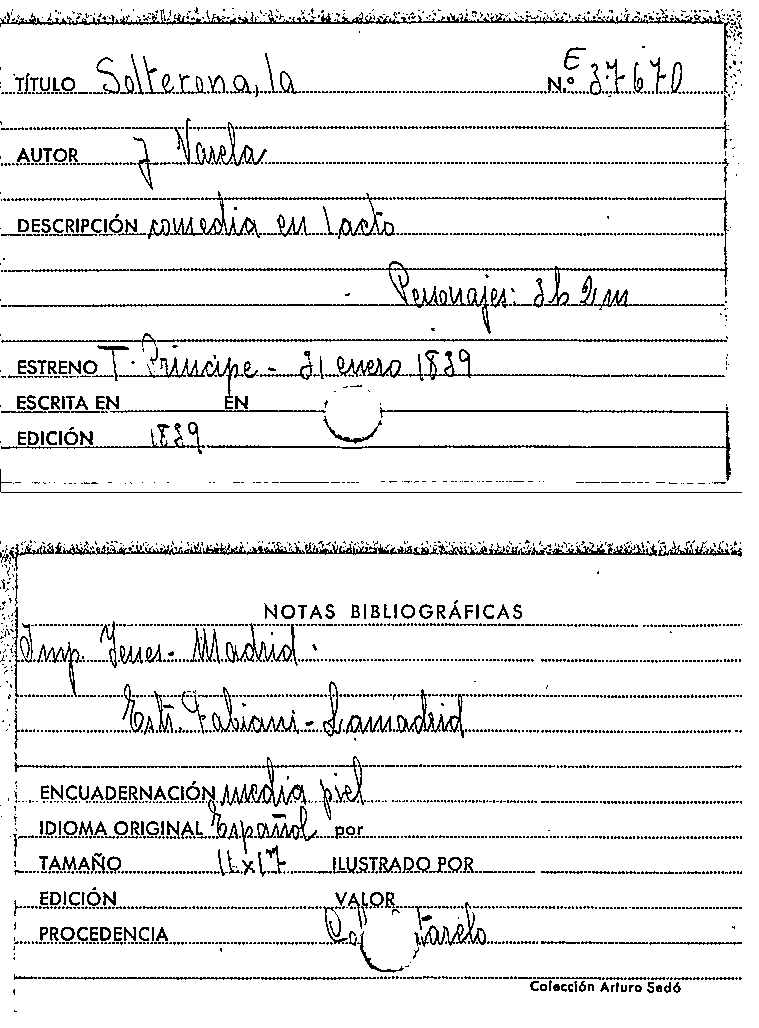 TÍTULO Solterona, la N.º E 37670
AUTOR J Varela
DESCRIPCIÓN comedia en 1 acto
Personajes: 3h 2m
ESTRENO T. Príncipe - 31 enero 1839
ESCRITA EN EN
EDICIÓN 1839
NOTAS BIBLIOGRÁFICAS
Imp. Yenes - Madrid.
Estr. Fabiani - Lamadrid
ENCUADERNACIÓN media piel
IDIOMA ORIGINAL Español por
TAMAÑO 11x17 ILUSTRADO POR
EDICIÓN VALOR
PROCEDENCIA
Colección Arturo Sedó